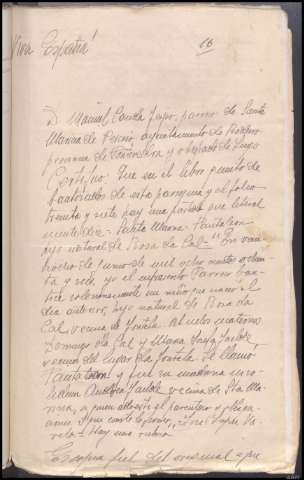 Viva España!
16
D. Manuel Cauda, parroco de Santa
Marina de ayuntamiento de
provincia de Pontevedra y obispado de Lugo
Certifico: Que en el libro quinto de
bautizados de esta parroquia y al folio
treinta y siete hay una partida que literal
mente dice: Santa Marina = Pantaleon
hijo natural de Rosa da Cal = "En vein
tiocho de Junio de mil ocho cientos ochen
ta y seis, yo el infrascrito Parroco bau
tice solemnemente un niño que nacio el
dia anterior, hijo natural de Rosa da
Cal, vecina de Portela. Abuelos maternos
Domingo da Cal y Maria
vecinos del lugar de Portela. Se llamo
Pantaleon y fue su madrina
vecina de Sta Ma
rina, a quien adverti el parentesco y obliga
ciones. Y que conste lo firmo, = Jose Lopez Va
rela = Hay una rubrica
Es copia fiel del original a que